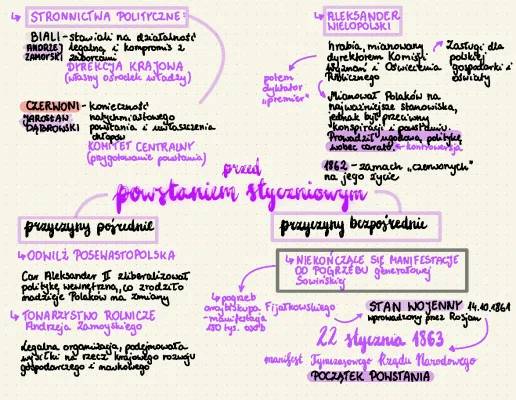 ↳ STRONNICTWA POLITYCZNE:
BIALI - stawiali na działalność
ANDRZEJ legalną i kompromis z
ZAMOYSKI zaborcami
DYREKCJA KRAJOWA
(własny ośrodek władzy)
CZERWONI - konieczność
JAROSŁAW natychmiastowego
DĄBROWSKI powstania i uwłaszczenia
chłopów
KOMITET CENTRALNY
(przygotowanie powstania)
↳ ALEKSANDER
WIELOPOLSKI
hrabia, mianowany
dyrektorem Komisji
Wyznań i Oświecenia
Publicznego
Zasługi dla
polskiej
gospodarki i
oświaty
potem
dyktator
"premier"
Mianował Polaków na
najważniejsze stanowiska,
jednak był przeciwny
konspiracji i powstaniu.
Prowadził ugodową politykę
wobec caratu. kontrowersja
1862 - zamach "czerwonych"
na jego życie
przed
powstaniem styczniowym
przyczyny pośrednie
↳ ODWILŻ POSEWASTOPOLSKA
Car Aleksander II zliberalizował
politykę wewnętrzną, co zrodziło
nadzieje Polaków na zmiany
↳ TOWARZYSTWO ROLNICZE
Andrzeja Zamoyskiego
Legalna organizacja, podejmowała
wysiłki na rzecz krajowego rozwoju
gospodarczego i naukowego
przyczyny bezpośrednie
↳ NIEKOŃCZĄCE SIĘ MANIFESTACJE
OD POGRZEBU generałowej
Sowińskiej
↳ pogrzeb
arcybiskupa Fijałkowskiego
- manifestacja
osób
STAN WOJENNY 14.10.1861
wprowadzony przez Rosjan
22 stycznia 1863
manifest Tymczasowego Rządu Narodowego
POCZĄTEK POWSTANIA